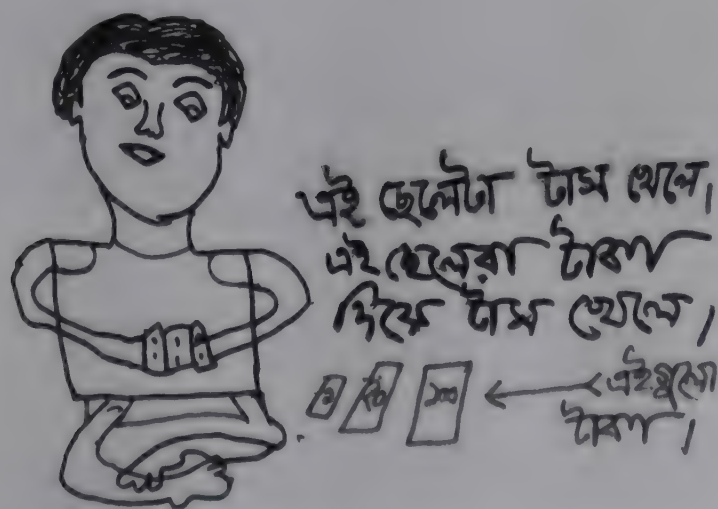 এই ছেলেটা টাস খেলে।
এই ছেলেরা টাকা
দিয়ে টাস খেলে।
৫০ ১০০ এইগুলো
টাকা।